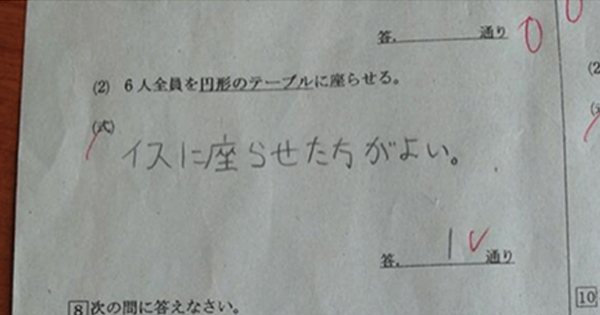 答. 通り 0
(2) 6人全員を円形のテーブルに座らせる。
(式)
イスに座らせた方がよい。
答. 1 通り
8 次の問に答えなさい。
10